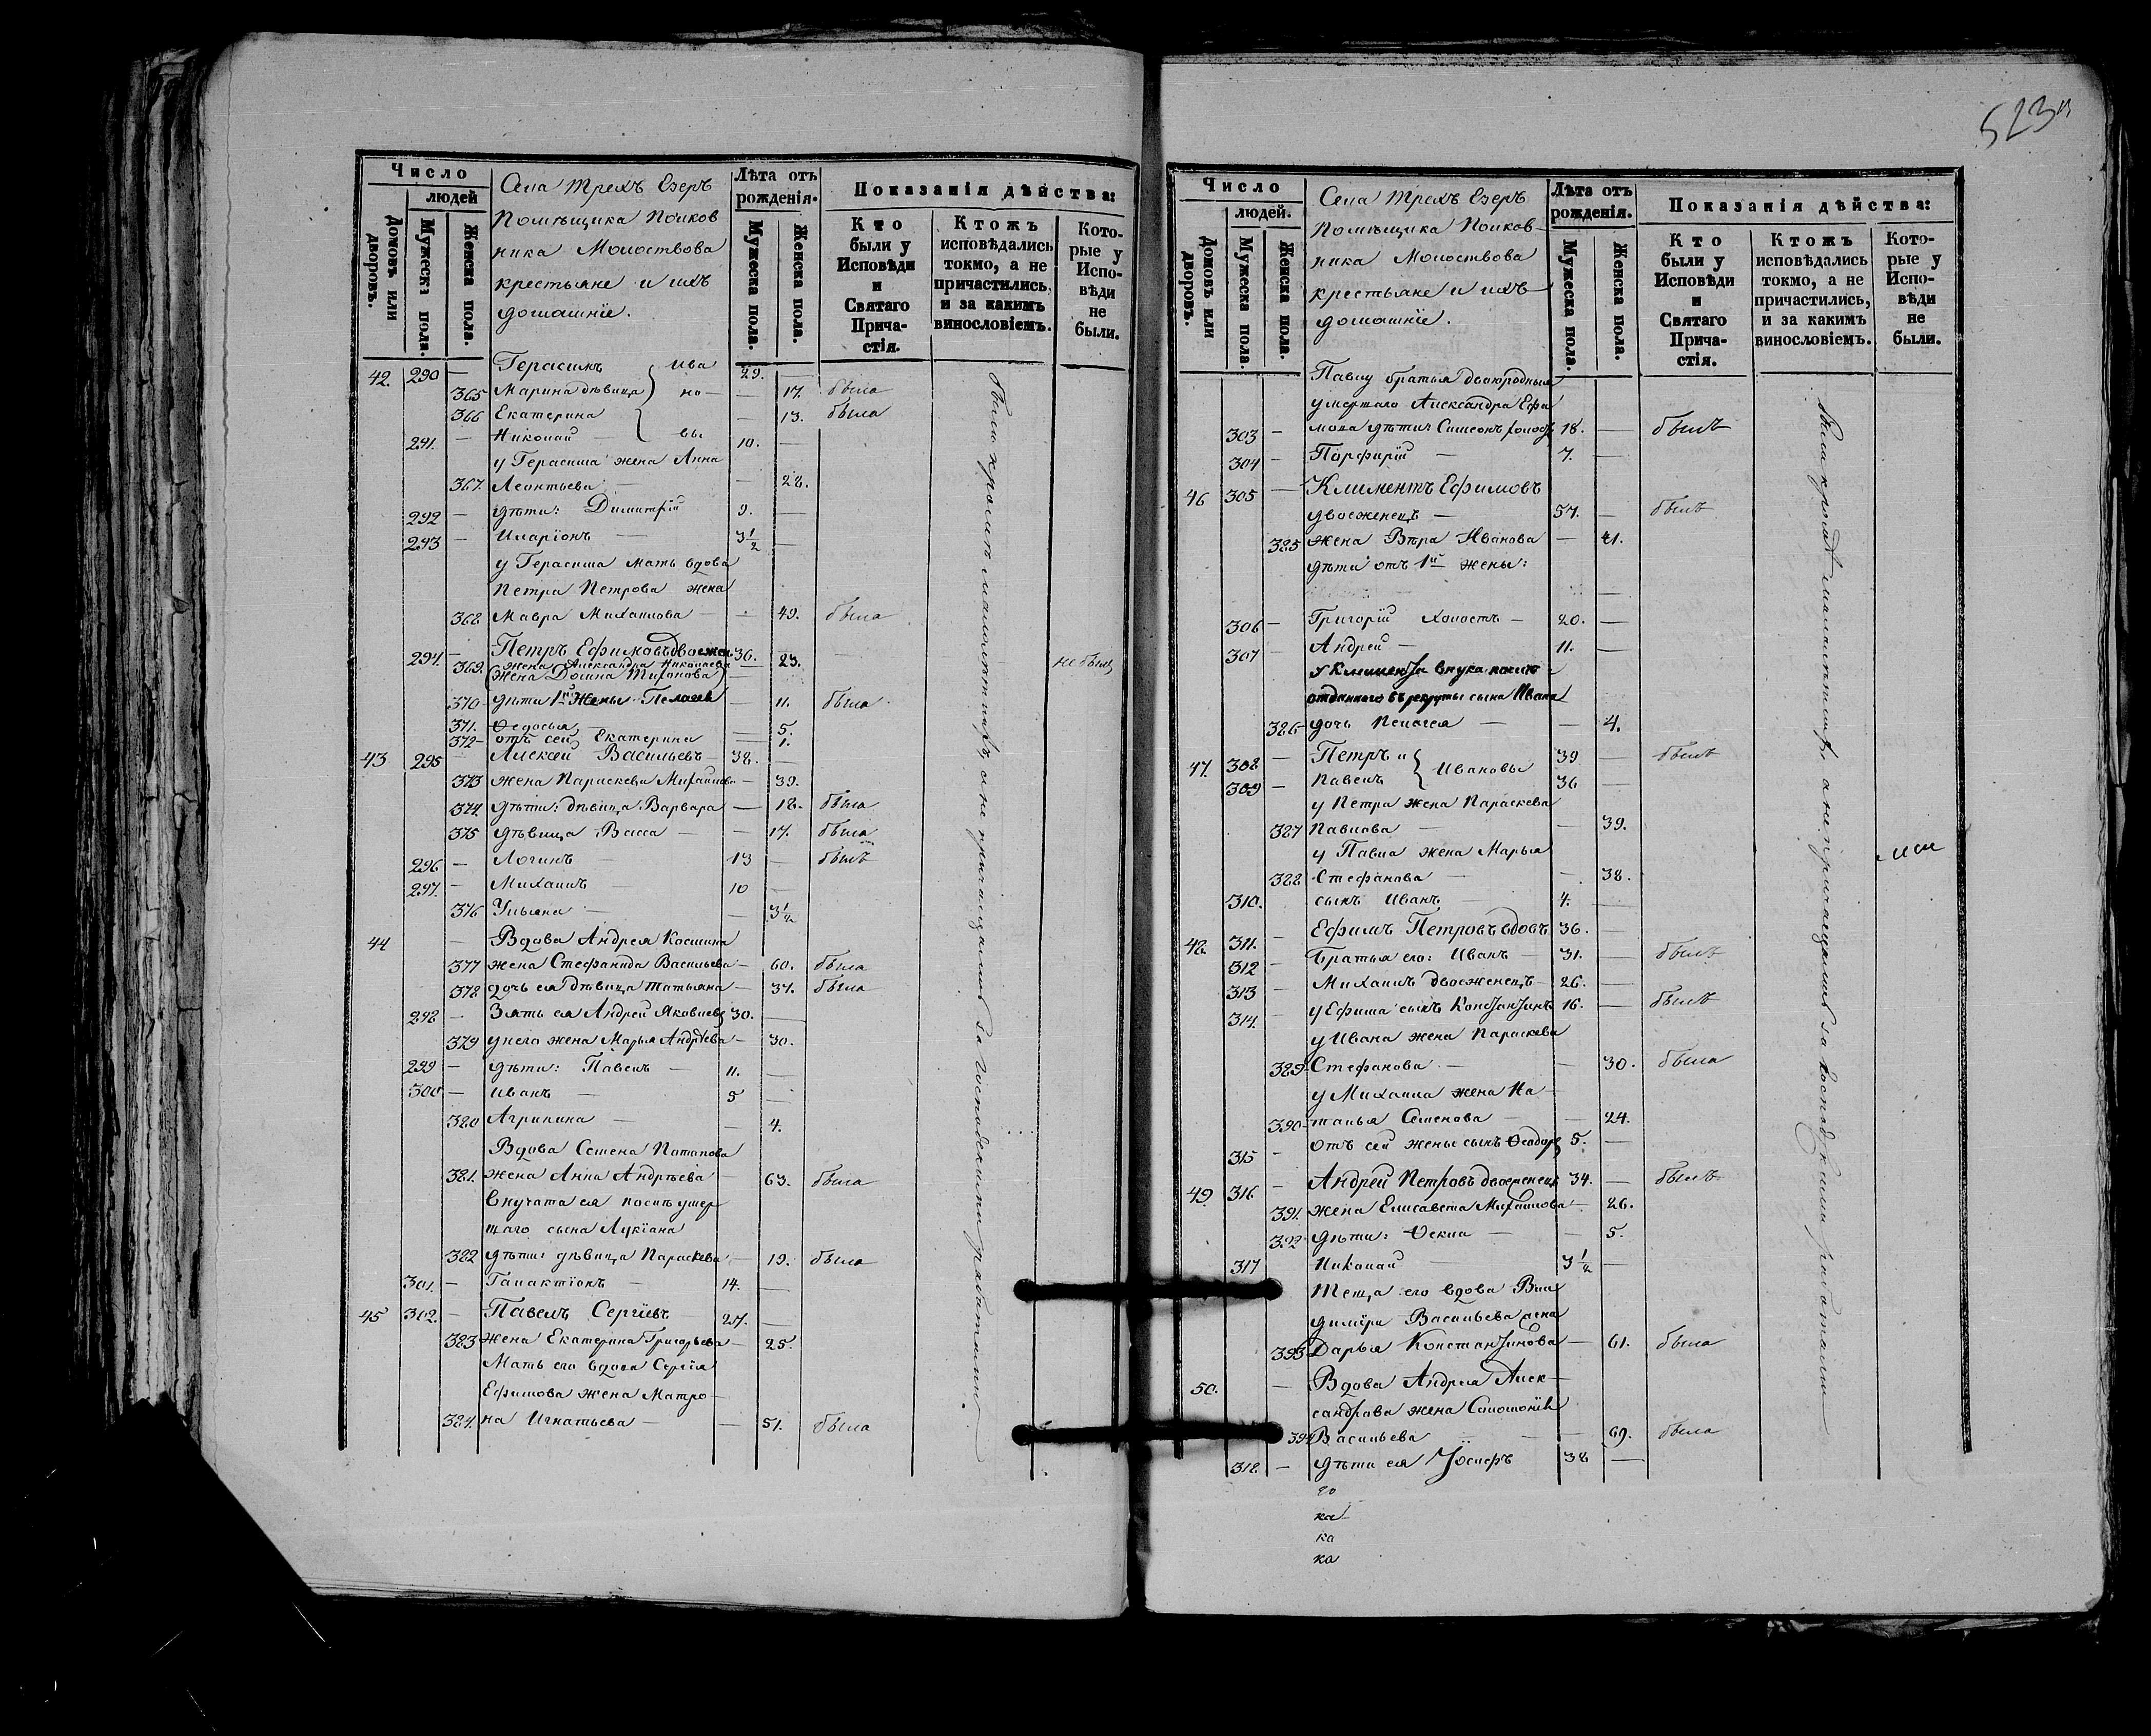 523
Число
людей
Домовъ или дворовъ.
Мужеска пола.
Женска пола.
Села Трехъ Езеръ
Помѣщика Полков
ника Молоствова
крестьяне и ихъ
домашніе.
Лѣта отъ рожденія.
Мужеска пола.
Женска пола.
Показанія дѣйства:
Кто были у Исповѣди и Святаго Причастія.
Ктожъ исповѣдались токмо, а не причастились, и за какимъ винословіемъ.
Которые у Исповѣди не были.
42. 290 — Герасимъ Ива 29. —
365 Марина дѣвица но — — 17. была
366 Екатерина — 13. была
291. — Николай — вы 10. —
у Герасима жена Анна
367. Леонтьева — — 28.
292 — дѣти: Димитрій 9. —
293 — Иларіонъ — 3 1/2 —
у Герасима мать вдова
Петра Петрова жена
368 Мавра Михаилова — — 49. была
294. — Петръ Ефимовъ двоежен. 36.
369. жена Александра Николаева — 23. не была
(жена Домна Тихонова) —
370 — дѣти 1й жены Пелагея — 11. была
371. Федосья — 5.
372 — отъ сей Екатерина — 1.
43 295 — Алексей Васильевъ — 38. —
373 жена Параскева Михайлова — 39.
374. дѣти: дѣвица Варвара — 18. была
375 дѣвица Васса — — 17. была
296 — Логинъ — 13 — былъ
297. — Михаилъ — 10 —
376 Ульяна — — 3 1/2
44 — Вдова Андрея Космина
377 жена Стефанида Васильева — 60. была
378 дочь ея дѣвица Татьяна — 37. была
298 — Зять ея Андрей Яковлевъ 30. —
379 у него жена Марья Андрѣева — 30.
299 — дѣти: Павелъ — 11. —
300 — Иванъ — 5 —
380 Агрипина — — 4.
Вдова Семена Потапова
381. жена Анна Андрѣева — 63. была
Внучата ея послѣ умер
шаго сына Лукіана
382 дѣти: дѣвица Параскева — 19. была
301. — Галактіонъ — 14. —
45 302. — Павелъ Сергіевъ 27. —
383 жена Екатерина Григорьева — 25.
Мать его вдова Сергія
Ефимова жена Матро—
384. на Игнатьева — — 51. была
были кромѣ малолѣтнихъ, а не причащались за господскими работами.
Число
людей.
Домовъ или дворовъ.
Мужеска пола.
Женска пола.
Села Трехъ Езеръ
Помѣщика Полков—
ника Молоствова
крестьяне и ихъ
домашніе.
Лѣта отъ рожденія.
Мужеска пола.
Женска пола.
Показанія дѣйства:
Кто были у Исповѣди и Святаго Причастія.
Ктожъ исповѣдались токмо, а не причастились, и за какимъ винословіемъ.
Которые у Исповѣди не были.
Павлу братья двоюродныя
умершаго Александра Ефи
303 — мова дѣти Симеонъ холос. 18. — былъ
304 — Парфирій — 7. —
46 305 — Климентъ Ефимовъ
двоеженецъ — 57. — былъ
385 жена Вѣра Иванова — 41.
дѣти отъ 1й жены:
306 — Григорій холостъ — 20. —
307 — Андрей — 11. —
у Климента внука послѣ
отданнаго въ рекруты сына Ивана
386 — дочь Пелагея — — 4.
47. 308 — Петръ и Ивановы 39 — былъ
309 — Павелъ 36 —
у Петра жена Параскева
387 Павлова — — 39.
у Павла жена Марья
388 Стефанова — — 38.
310. сынъ Иванъ — 4. —
48. 311. — Ефимъ Петровъ вдовъ 36. —
312 — Братья его: Иванъ — 31. — былъ
313 — Михаилъ двоеженецъ — 26. —
314. у Ефима сынъ Константинъ 16. — былъ
у Ивана жена Параскева
389 — Стефанова — — 30. была
у Михаила жена На—
390 — талья Семенова — — 24.
315 — отъ сей жены сынъ Феодоръ 5. —
49. 316 — Андрей Петровъ двоеженецъ 34. — былъ
391. жена Елисавета Михайлова — 26.
392 — дѣти: Фекла — — 5.
317 Николай — 3 1/2 —
Теща его вдова Вла
диміра Васильева жена
393 Дарья Константинова — 61. была
50. — Вдова Андрея Алек—
сандрова жена Соломонія
394 Васильева — — 69. была
318 — дѣти ея Іосифъ 38 —
ка
ка
были кромѣ малолѣтнихъ, а не причащались за господскими работами